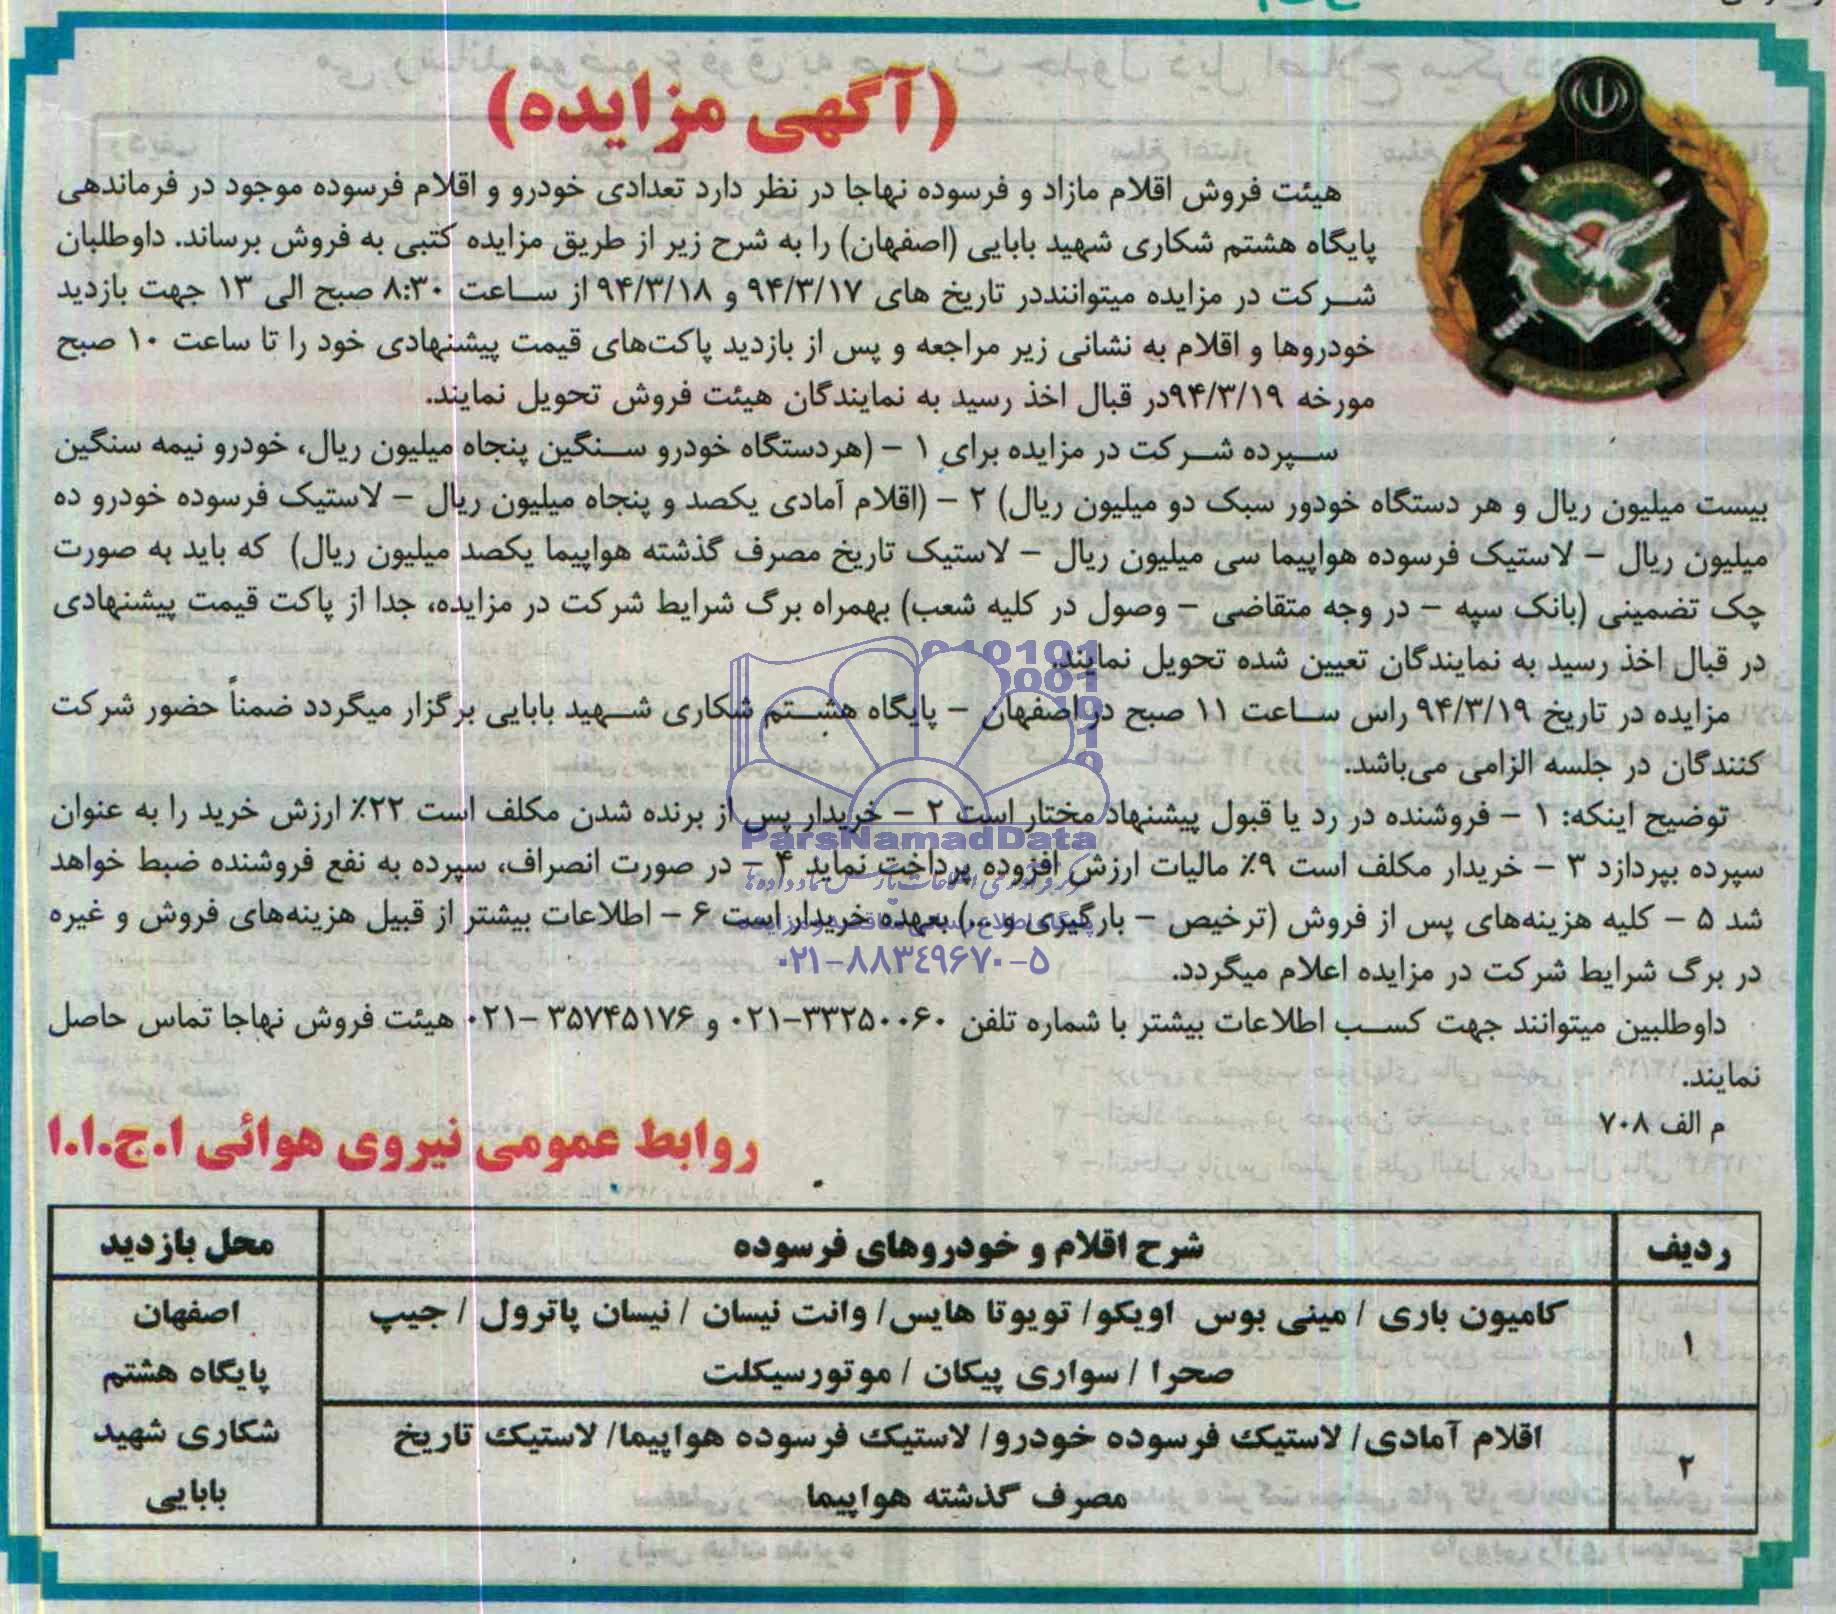 (آگهی مزایده)
هیئت فروش اقلام مازاد و فرسوده نهاجا در نظر دارد تعدادی خودرو و اقلام فرسوده موجود در فرماندهی
پایگاه هشتم شکاری شهید بابایی (اصفهان) را به شرح زیر از طریق مزایده کتبی به فروش برساند. داوطلبان
شرکت در مزایده میتواننددر تاریخ های ۹۴/۳/۱۷ و ۹۴/۳/۱۸ از ساعت ۸:۳۰ صبح الی ۱۳ جهت بازدید
خودروها و اقلام به نشانی زیر مراجعه و پس از بازدید پاکت‌های قیمت پیشنهادی خود را تا ساعت ۱۰ صبح
مورخه ۹۴/۳/۱۹در قبال اخذ رسید به نمایندگان هیئت فروش تحویل نمایند.
سپرده شرکت در مزایده برای ۱ – (هردستگاه خودرو سنگین پنجاه میلیون ریال، خودرو نیمه سنگین
بیست میلیون ریال و هر دستگاه خودور سبک دو میلیون ریال) ۲ – (اقلام آمادی یکصد و پنجاه میلیون ریال – لاستیک فرسوده خودرو ده
میلیون ریال – لاستیک فرسوده هواپیما سی میلیون ریال – لاستیک تاریخ مصرف گذشته هواپیما یکصد میلیون ریال) که باید به صورت
چک تضمینی (بانک سپه – در وجه متقاضی – وصول در کلیه شعب) بهمراه برگ شرایط شرکت در مزایده، جدا از پاکت قیمت پیشنهادی
در قبال اخذ رسید به نمایندگان تعیین شده تحویل نمایند.
مزایده در تاریخ ۹۴/۳/۱۹ راس ساعت ۱۱ صبح در اصفهان – پایگاه هشتم شکاری شهید بابایی برگزار میگردد ضمناً حضور شرکت
کنندگان در جلسه الزامی می‌باشد.
توضیح اینکه: ۱ – فروشنده در رد یا قبول پیشنهاد مختار است ۲ – خریدار پس از برنده شدن مکلف است ۲۲٪ ارزش خرید را به عنوان
سپرده بپردازد ۳ – خریدار مکلف است ۹٪ مالیات ارزش افزوده پرداخت نماید ۴ – در صورت انصراف، سپرده به نفع فروشنده ضبط خواهد
شد ۵ – کلیه هزینه‌های پس از فروش (ترخیص – بارگیری و ...) بعهده خریدار است ۶ – اطلاعات بیشتر از قبیل هزینه‌های فروش و غیره
در برگ شرایط شرکت در مزایده اعلام میگردد.
داوطلبین میتوانند جهت کسب اطلاعات بیشتر با شماره تلفن ۳۳۲۵۰۰۶۰–۰۲۱ و ۳۵۷۴۵۱۷۶ –۰۲۱ هیئت فروش نهاجا تماس حاصل
نمایند.
م الف ۷۰۸
روابط عمومی نیروی هوائی ا.ج.ا.ا
ردیف شرح اقلام و خودروهای فرسوده محل بازدید
۱ کامیون باری / مینی بوس اویکو/ تویوتا هایس/ وانت نیسان / نیسان پاترول / جیپ
صحرا / سواری پیکان / موتورسیکلت
۲ اقلام آمادی/ لاستیک فرسوده خودرو/ لاستیک فرسوده هواپیما/ لاستیک تاریخ
مصرف گذشته هواپیما
اصفهان
پایگاه هشتم
شکاری شهید
بابایی
ParsNamadData
۰۲۱–۸۸۳۴۹۶۷۰–۵